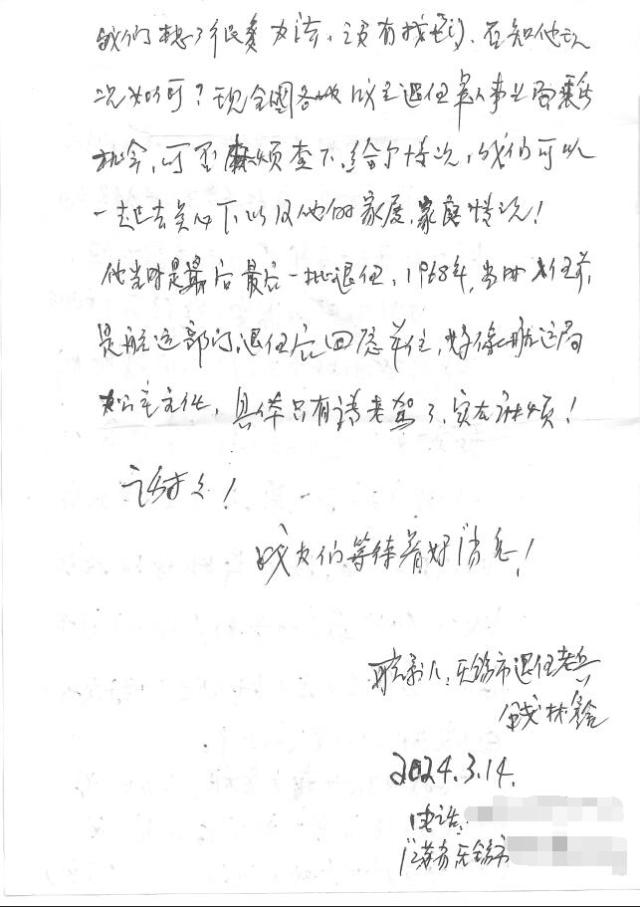 我们想了很多办法,没有找到,不知他现
况如何?现全国各地成立退伍军人事业局
机会,可否麻烦查下,给个情况,我们可以
一起去关心下以及他的家庭,家庭情况!
他当时是最后最后一批退伍,1968年,当时
是航运部门,退伍后回原单位,好像航运局
办公室主任,具体只有请老驾了,实在麻烦!
谢谢!
我们等待着好消息!
联系人:无锡市退伍老兵
钱林
2024.3.14.
电话:
江苏无锡市